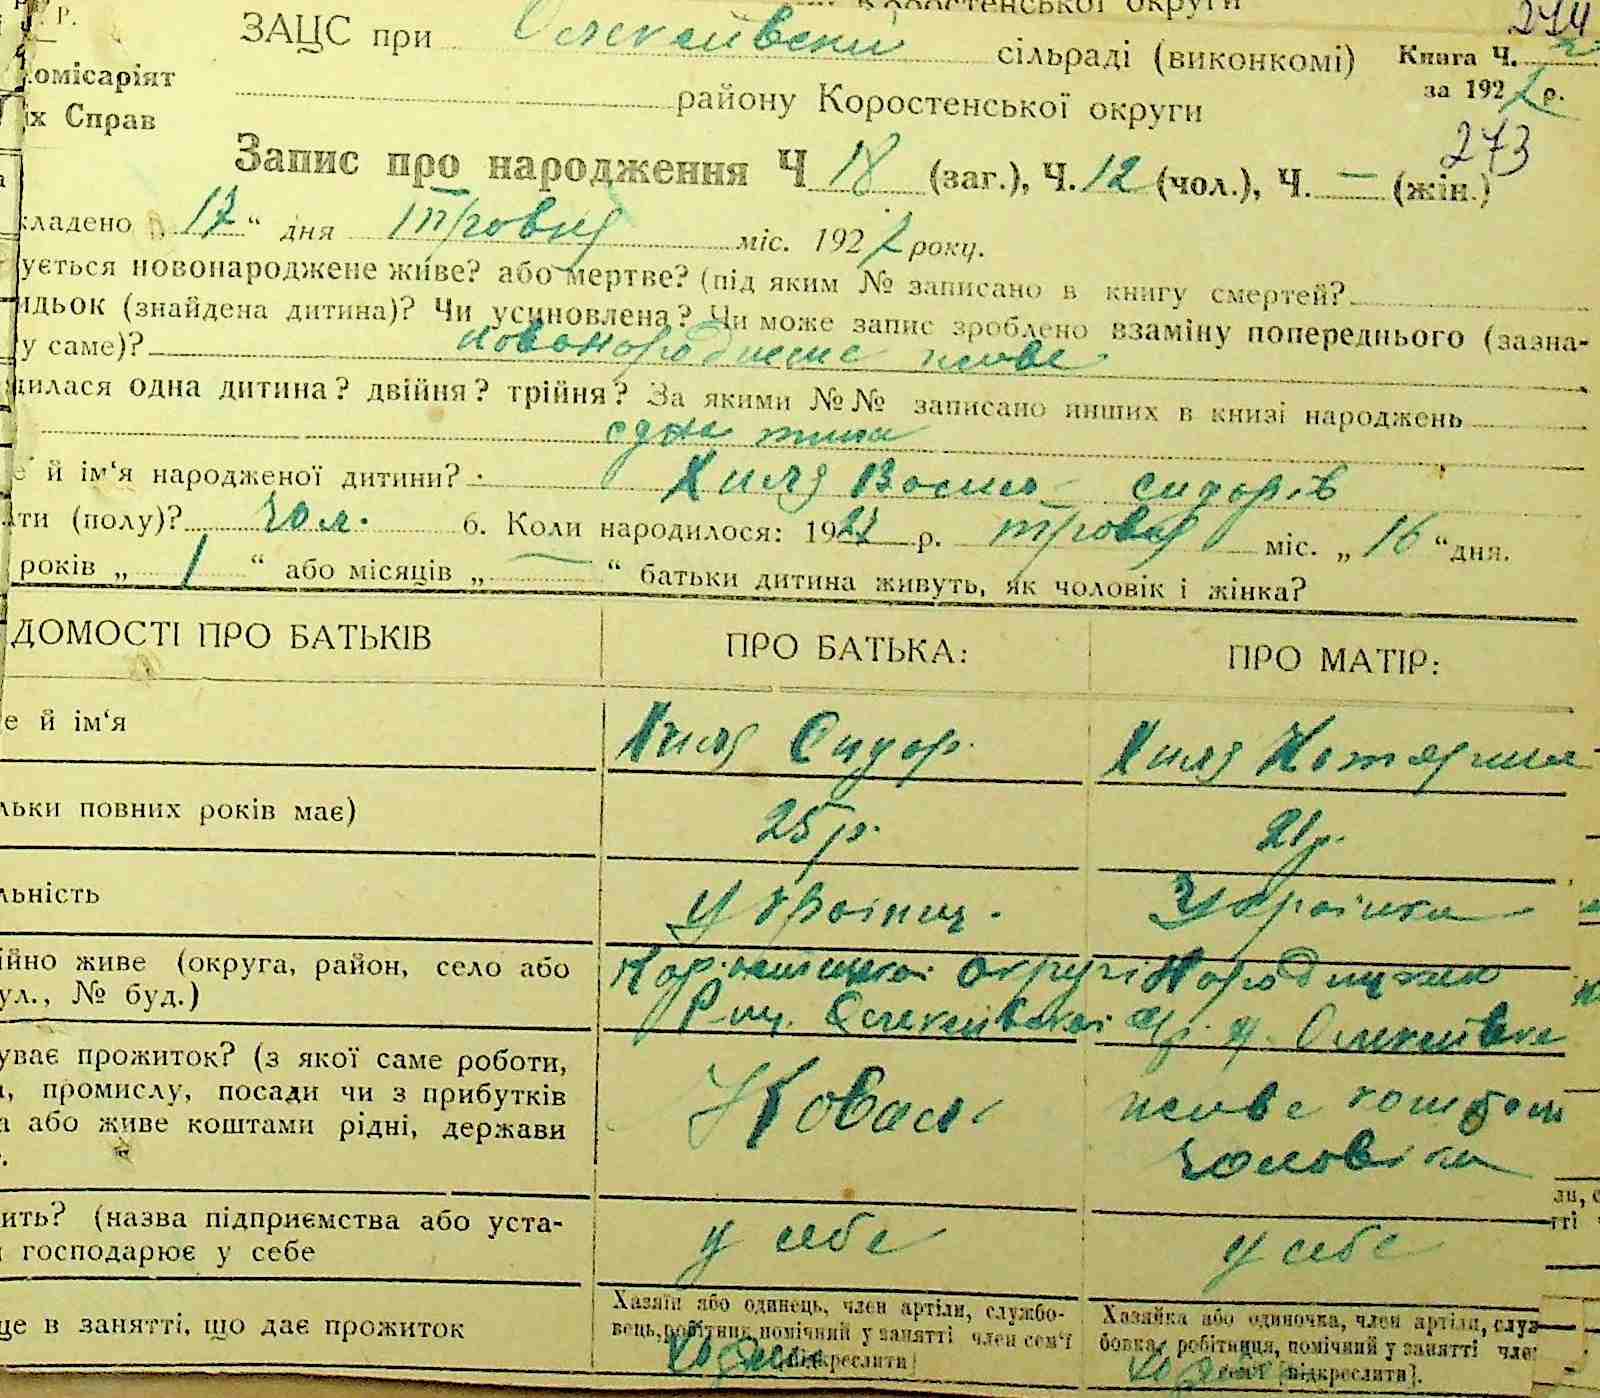 Коростенської округи
274
Р.
ЗАЦС при Олексіївськ сільраді (виконкомі) Книга Ч.
омісаріят
за 1927 р.
району Коростенської округи
их Справ
273
Запис про народження Ч 18 (заг.), Ч. 12 (чол.), Ч. — (жін.)
кладено „17“ дня травня міс. 1927 року.
ується новонароджене живе? або мертве? (під яким № записано в книгу смертей?
идьок (знайдена дитина)? Чи усиновлена? Чи може запис зроблено взаміну попереднього (зазна-
у саме)? новонароджене живе
дилася одна дитина? двійня? трійня? За якими №№ записано инших в книзі народжень
одна
е й ім‘я народженої дитини? Хиля Василь Сидорів
ати (полу)? чол. 6. Коли народилося: 1927 р. травня міс. „16“ дня.
років „1“ або місяців „—“ батьки дитина живуть, як чоловік і жінка?
ДОМОСТІ ПРО БАТЬКІВ ПРО БАТЬКА: ПРО МАТІР:
е й ім‘я Хиля Сидор Хиля Катерина
льки повних років має) 25 р. 21 р.
льність Українец. Українка
ійно живе (округа, район, село або Коростенської округи Народицького
ул., № буд.) Олексіївка
ував прожиток? (з якої саме роботи,
, промислу, посади чи з прибутків Коваль живе коштом
а або живе коштами рідні, держави чоловіка
ить? (назва підприємства або уста- у себе у себе
господарює у себе
це в занятті, що дає прожиток
Хазяїн або одинець, член артіли, службо-
вець, робітник, помічний у занятті член сем‘ї
[підкреслити]
Хазяйка або одиночка, член артіли, служ
бовка, робітниця, помічний у занятті член
сем‘ї [підкреслити].